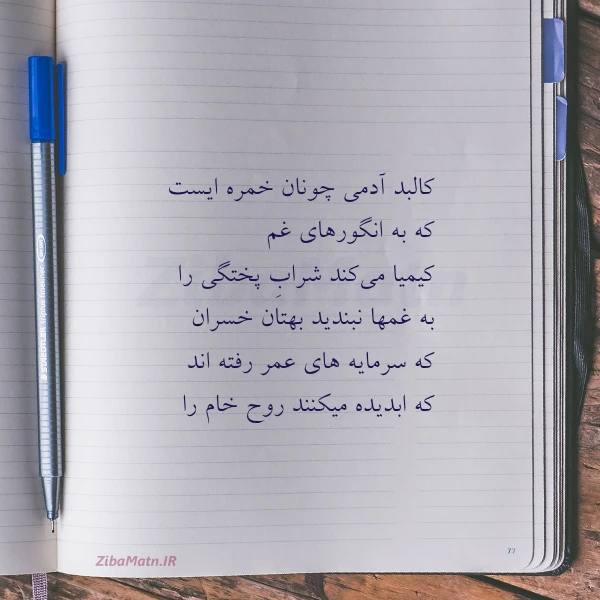 کالبد آدمی چونان خمره ایست
که به انگورهای غم
کیمیا می‌کند شرابِ پختگی را
به غمها نبندید بهتان خسران
که سرمایه های عمر رفته اند
که ابدیده میکنند روح خام را
ZibaMatn.IR
77